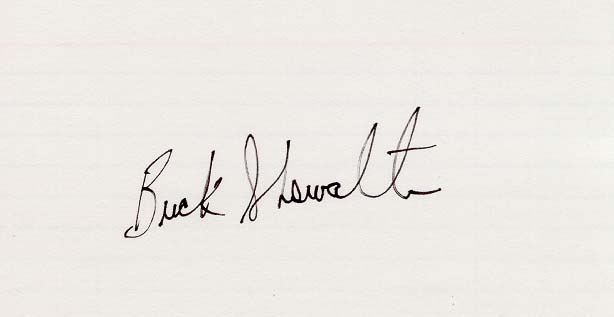 Buck Showalter